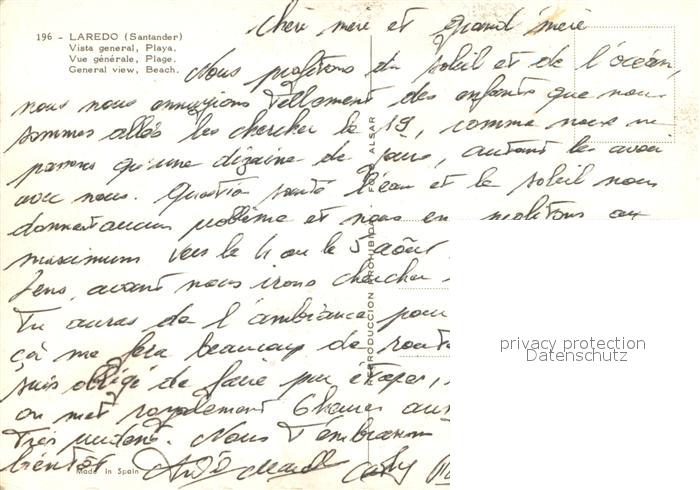 196 - LAREDO (Santander)
Vista general, Playa.
Vue générale, Plage.
General view, Beach.
Chère mère et grand'mère
Nous profitons du soleil et de l'océan,
nous nous ennuyions tellement des enfants que nous
sommes allés les chercher le 19, comme nous ne
passons qu'une dizaine de jours, autant les avoir
avec nous. Question santé l'eau et le soleil nous
donnent aucun problème et nous en profitons au
maximum vers le 4 ou le 5 août
avant nous irons chercher
Tu auras de l'ambiance pour
çà me fera beaucoup de route
suis obligé de faire par étapes,
on met royalement 6 heures
Très prudent. Nous t'embrassons
bientôt
Made in Spain
REPRODUCCION PROHIBIDA - FOTO ALSAR
privacy protection
Datenschutz